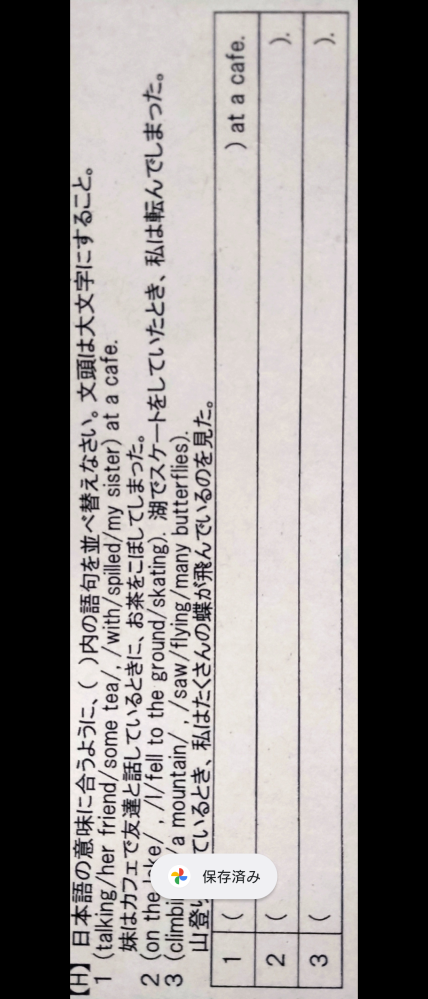 【H】 日本語の意味に合うように、( )内の語句を並べ替えなさい。文頭は大文字にすること。
1 (talking/her friend/some tea/, /with/spilled/my sister) at a cafe.
妹はカフェで友達と話しているときに、お茶をこぼしてしまった。
2 (on the /, /I/fell to the ground/skating). 湖でスケートをしていたとき、私は転んでしまった。
3 (a mountain/, /saw/flying/many butterflies).
山登ているとき、私はたくさんの蝶が飛んでいるのを見た。
保存済み
1 ( ) at a cafe.
2 ( ).
3 ( ).